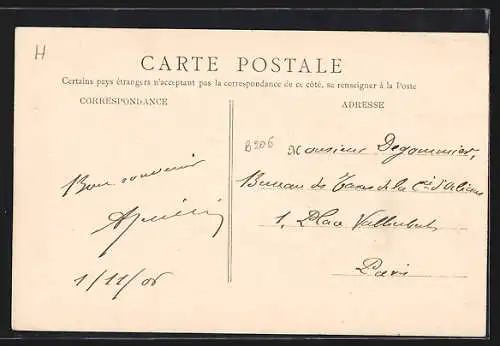 H
CARTE POSTALE
Certains pays étrangers n'acceptant pas la correspondance de ce côté, se renseigner à la Poste
CORRESPONDANCE
ADRESSE
B206
Monsieur Degommier,
Bureau des Taxes de la Cie d'Orléans
1, Place Valhubert
Paris
Bon souvenir
1/11/06